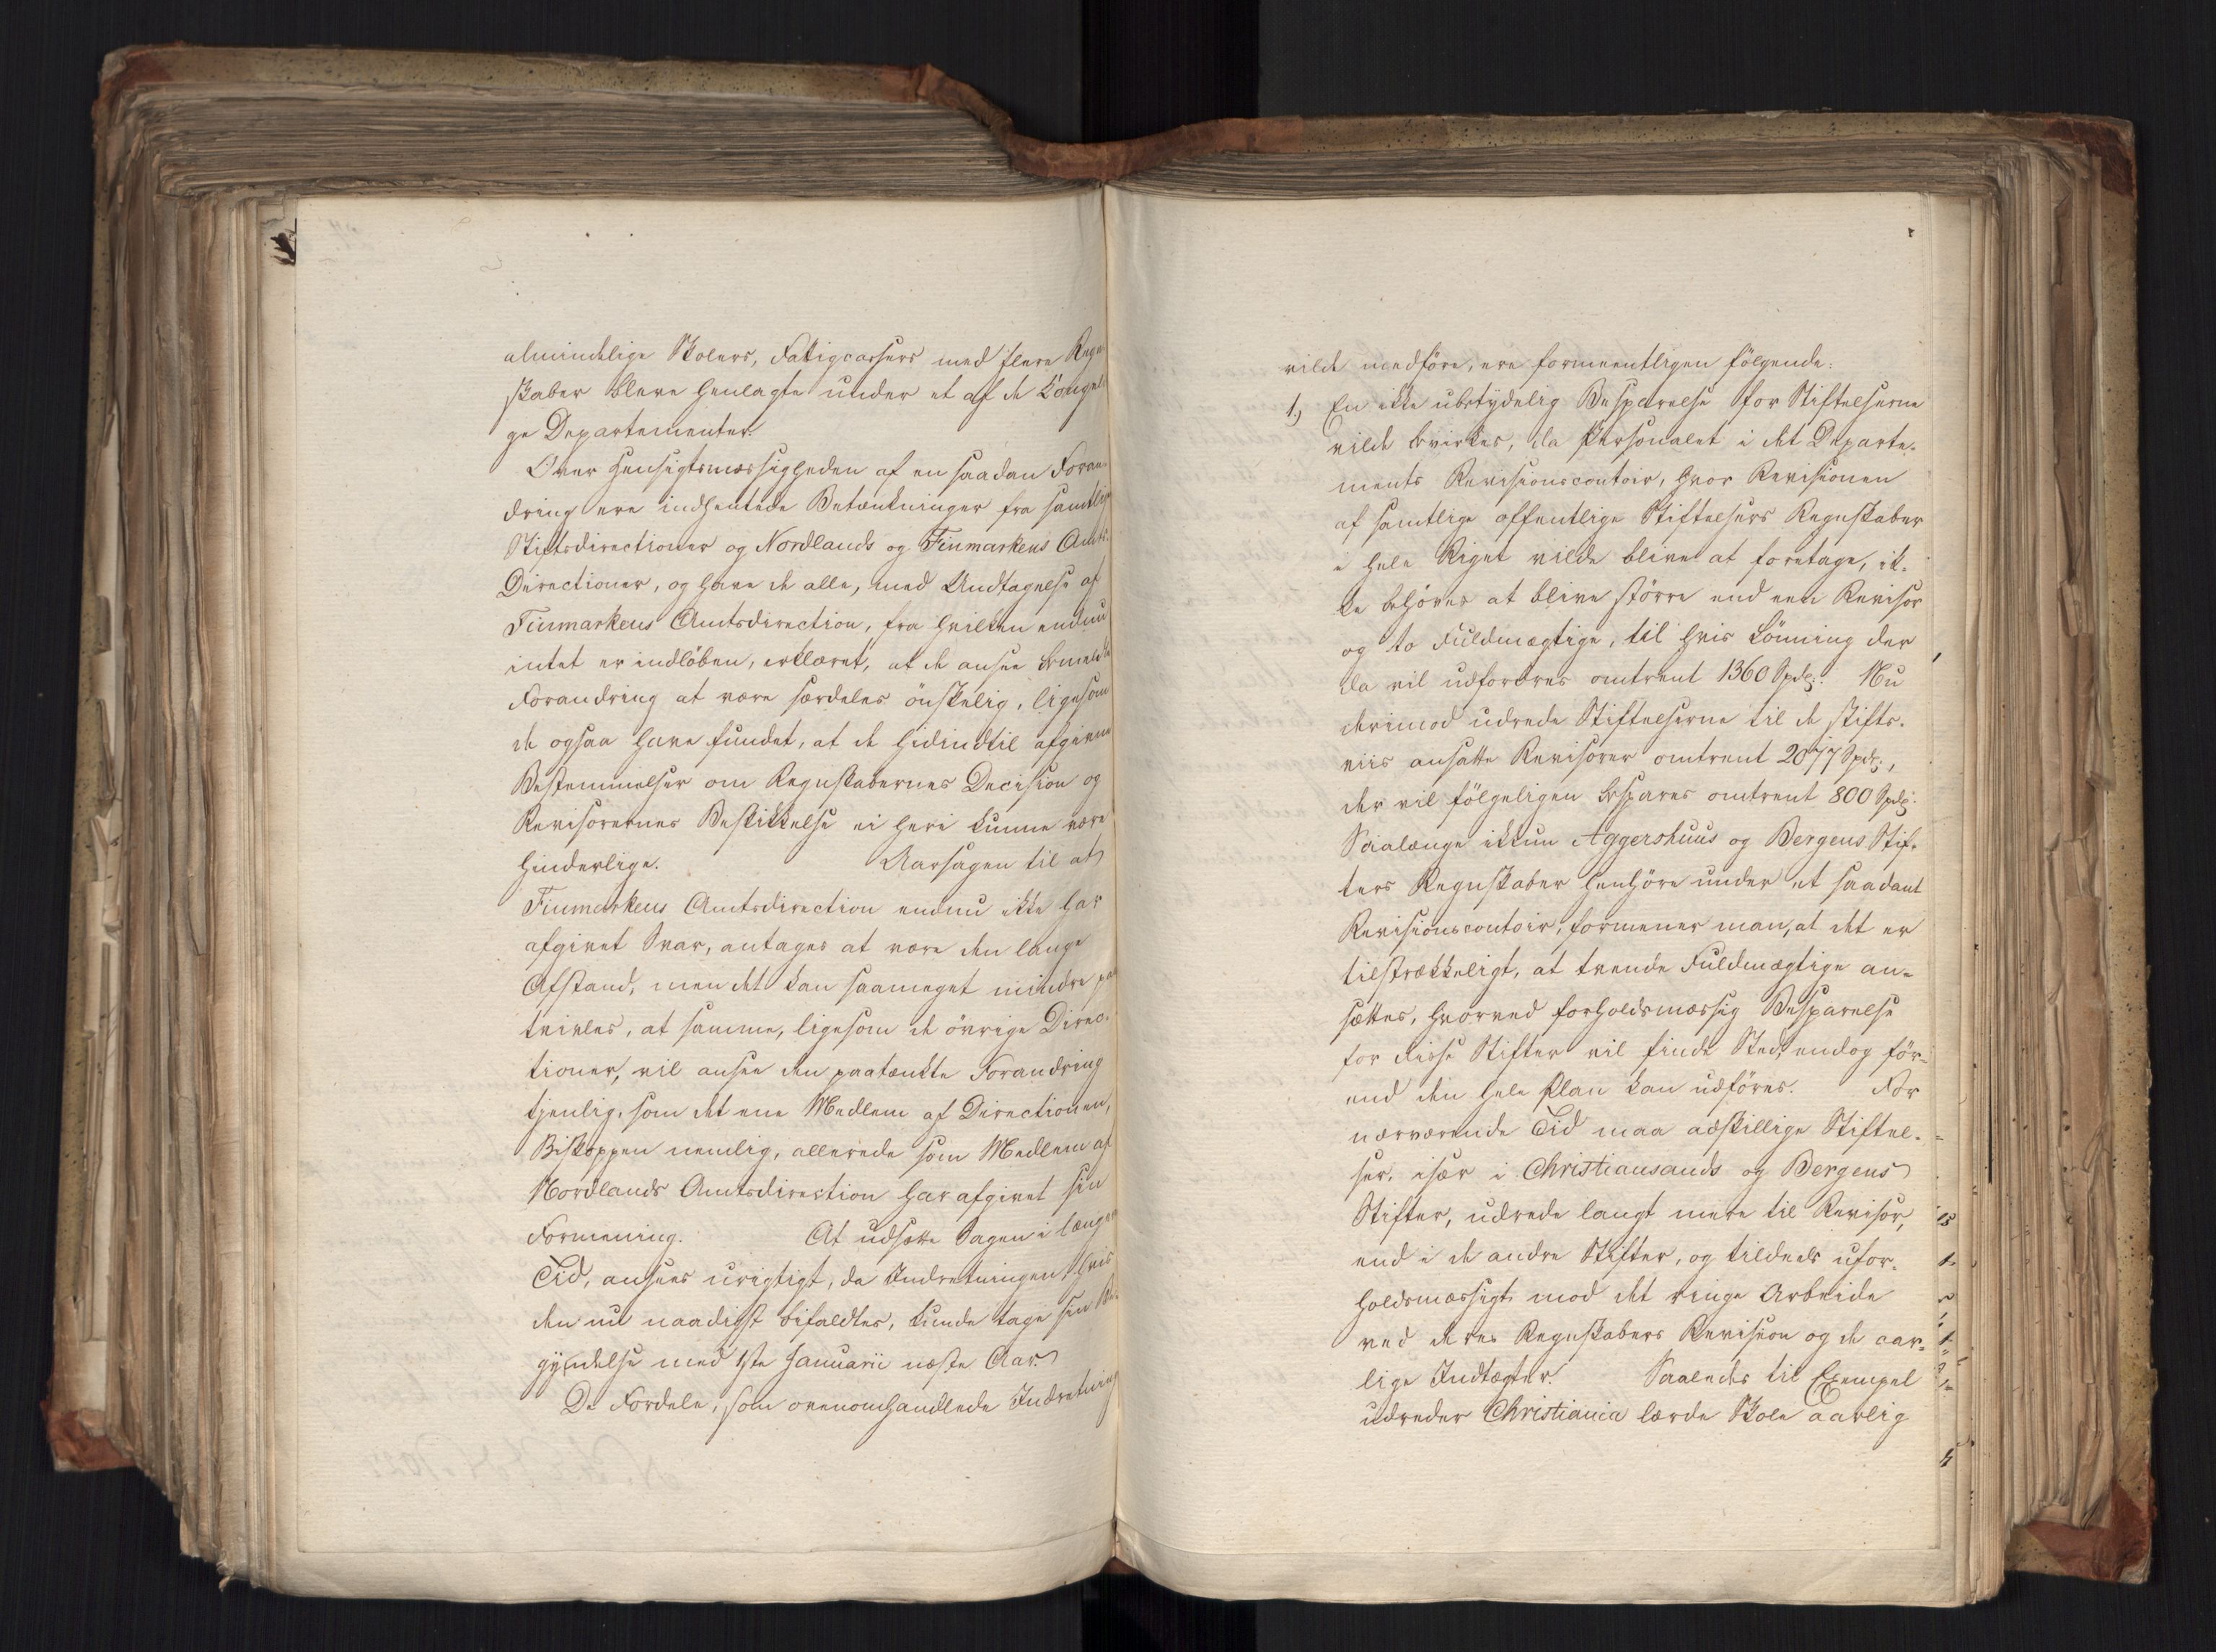 almindelige Skolers, Fattigcassers med flere Regn
skaber bleve henlagte under et af de Kongeli
ge Departementer.
Over Hensigtsmæssigheden af en saadan Foran-
dring ere indhentede Betænkninger fra samtlige
Stiftsdirectioner og Nordlands og Finmarkens Amts
Directioner, og have de alle, med Undtagelse af
Finmarkens Amtsdirection, fra hvilken endnu
intet er indlöben, erklæret, at de ansee bemeldte
Forandring at være særdeles önskelig, ligesom
de ogsaa have fundet, at de hidindtil afgivne
Bestemmelser om Regnskabernes Decision og
Revisorernes Beskikkelse ei heri kunne være
hinderlige. Aarsagen til at
Finmarkens Amtsdirection endnu ikke har
afgivet Svar, antages at være den lange
Afstand, men det kan saameget mindre paa
tvivles, at samme, ligesom de övrige Direc-
tioner, vil ansee den paatænkte Forandring
tjenlig, som det ene Medlem af Directionen,
Biskoppen nemlig, allerede som Medlem af
Nordlands Amtsdirection har afgivet sin
Formening. At udsætte Sagen i længere
Tid, ansees urigtigt, da Indretningen, hvis
den nu naadigst bifaldtes, kunde tage sin Be-
gyndelse med 1ste Januarii næste Aar.
De Fordele, som ovenomhandlede Indretning
vilde medföre, ere formeentligen fölgende:
1.) En ikke ubetydelig Besparelse for Stiftelserne
vilde bevirkes, da Personalet i det Departe-
ments Revisionscontoir, hvor Revisionen
af samtlige offentlige Stiftelsers Regnskaber
i hele Riget vilde blive at foretage, ik-
ke behöver at blive större end een Revisor
og to Fuldmægtige, til hvis Lönning der
da vil udfordres omtrent 1360 Spd: Nu
derimod udrede Stiftelserne til de stifts-
viis ansatte Revisorer omtrent 2077 Spd:,
der vil fölgeligen bespares omtrent 800 Spd:
Saalænge ikkun Aggershuus og Bergens Stif-
ters Regnskaber henhöre under et saadant
Revisionscontoir, formener man, at det er
tilstrækkeligt, at tvende Fuldmægtige an-
sættes, hvorved forholdsmæssig Besparelse
for disse Stifter vil finde Sted, endog för-
end den hele Plan kan udföres. For
nærværende Tid maa adskillige Stiftel-
ser, især i Christiansands og Bergens
Stifter, udrede langt mere til Revisor,
end i de andre Stifter, og tildeels ufor-
holdsmæssigt mod det ringe Arbeide
ved deres Regnskabers Revision og de aar-
lige Indtægter. Saaledes til Exempel
udreder Christiania lærde Skole aarlig